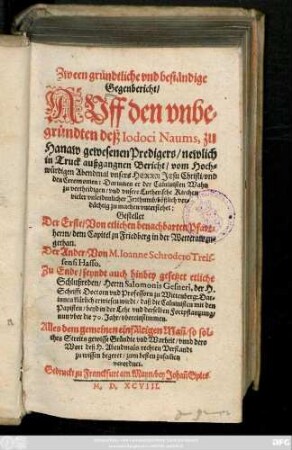 Zween gründtliche vnd beständige
Gegenbericht/
Auff den vnbe-
gründten deß Iodoci Naums, zu
Hanaw gewesenen Predigers/newlich
in Truck außgangnen Bericht/vom Hoch-
würdigen Abendmal vnsers HERRN Jesu Christi/vnd
den Ceremonien: Darinnen er der Caluinisten Wahn
zu vertheidigen/vnd vnsere Lutherische Kirchen
vieler vnleidlicher Irrthumb boßlich ver-
dächtig zu machen vnterstehet:
Gestellet
Der Erste/Von etlichen benachbarten Pfarr-
herrn/dem Capitel zu Friedberg in der Wetteraw zu-
gethan.
Der Ander/Von M. Ioanne Schrodero Treis-
sensi Hasso.
Zu Ende/seynde auch hinbey gesetzet etliche
Schlußreden/Herrn Salomonis Gesneri, der H.
Schrifft Doctorn vnd Professorn zu Wittenberg: Dar-
innen klärlich erwiesen wirdt/daß die Caluinisten mit den
Papisten/beyd in der Lehr vnd derselben Fortpflantzung/
nur vber die 70. Jahr/vbereinstimmen.
Alles dem gemeinen einfältigen Mañ/so sol-
ches Streits gewisse Gründe vnd Warheit/vnnd dero
Wort deß H. Abendmals rechten Verstandt
zu wissen begeret/zum besten zusamen
verordnet.
Gedruckt zu Franckfurt am Mayn/bey Johañ Spies.
M. D. XCVIII.